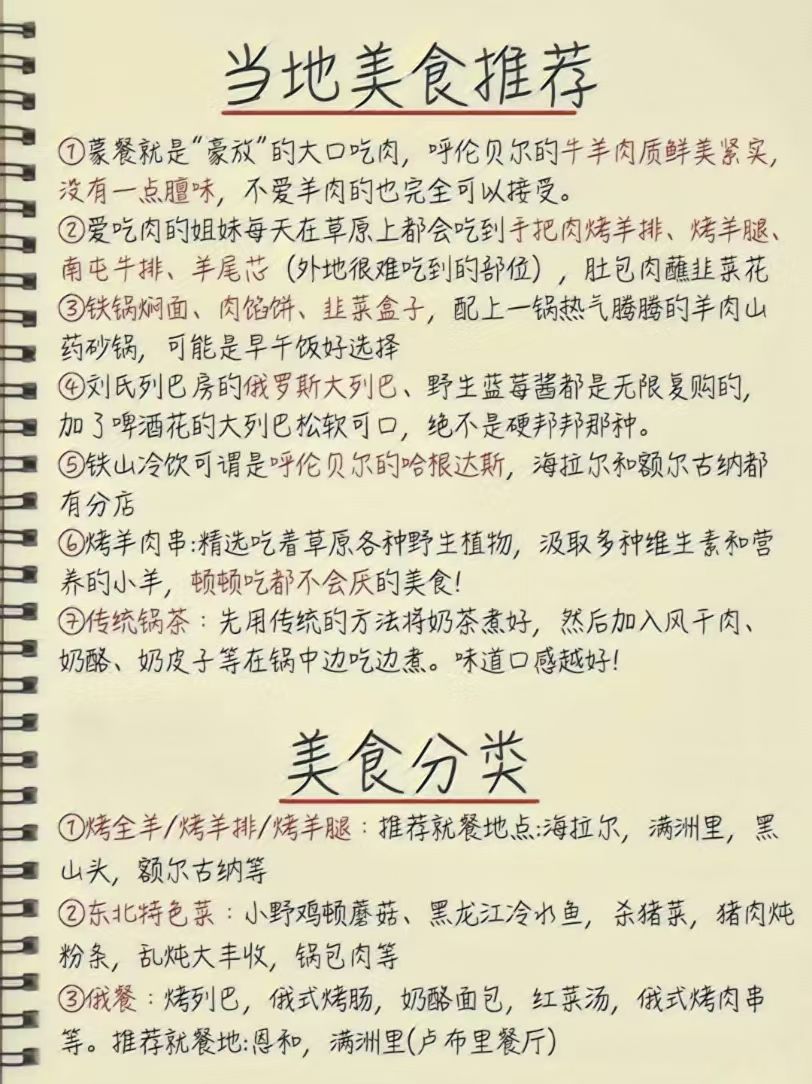 当地美食推荐
①蒙餐就是“豪放”的大口吃肉，呼伦贝尔的牛羊肉质鲜美紧实，
没有一点膻味，不爱羊肉的也完全可以接受。
②爱吃肉的姐妹每天在草原上都会吃到手把肉烤羊排、烤羊腿、
南屯牛排、羊尾芯（外地很难吃到的部位），肚包肉蘸韭菜花
③铁锅焖面、肉馅饼、韭菜盒子，配上一锅热气腾腾的羊肉山
药砂锅，可能是早午饭好选择
④刘氏列巴房的俄罗斯大列巴、野生蓝莓酱都是无限复购的，
加了啤酒花的大列巴松软可口，绝不是硬邦邦那种。
⑤铁山冷饮可谓是呼伦贝尔的哈根达斯，海拉尔和额尔古纳都
有分店
⑥烤羊肉串:精选吃着草原各种野生植物，汲取多种维生素和营
养的小羊，顿顿吃都不会厌的美食!
⑦传统锅茶：先用传统的方法将奶茶煮好，然后加入风干肉、
奶酪、奶皮子等在锅中边吃边煮。味道口感越好!
美食分类
①烤全羊/烤羊排/烤羊腿：推荐就餐地点:海拉尔，满洲里，黑
山头，额尔古纳等
②东北特色菜：小野鸡顿蘑菇、黑龙江冷水鱼，杀猪菜，猪肉炖
粉条，乱炖大丰收，锅包肉等
③俄餐：烤列巴，俄式烤肠，奶酪面包，红菜汤，俄式烤肉串
等。推荐就餐地:恩和，满洲里(卢布里餐厅)